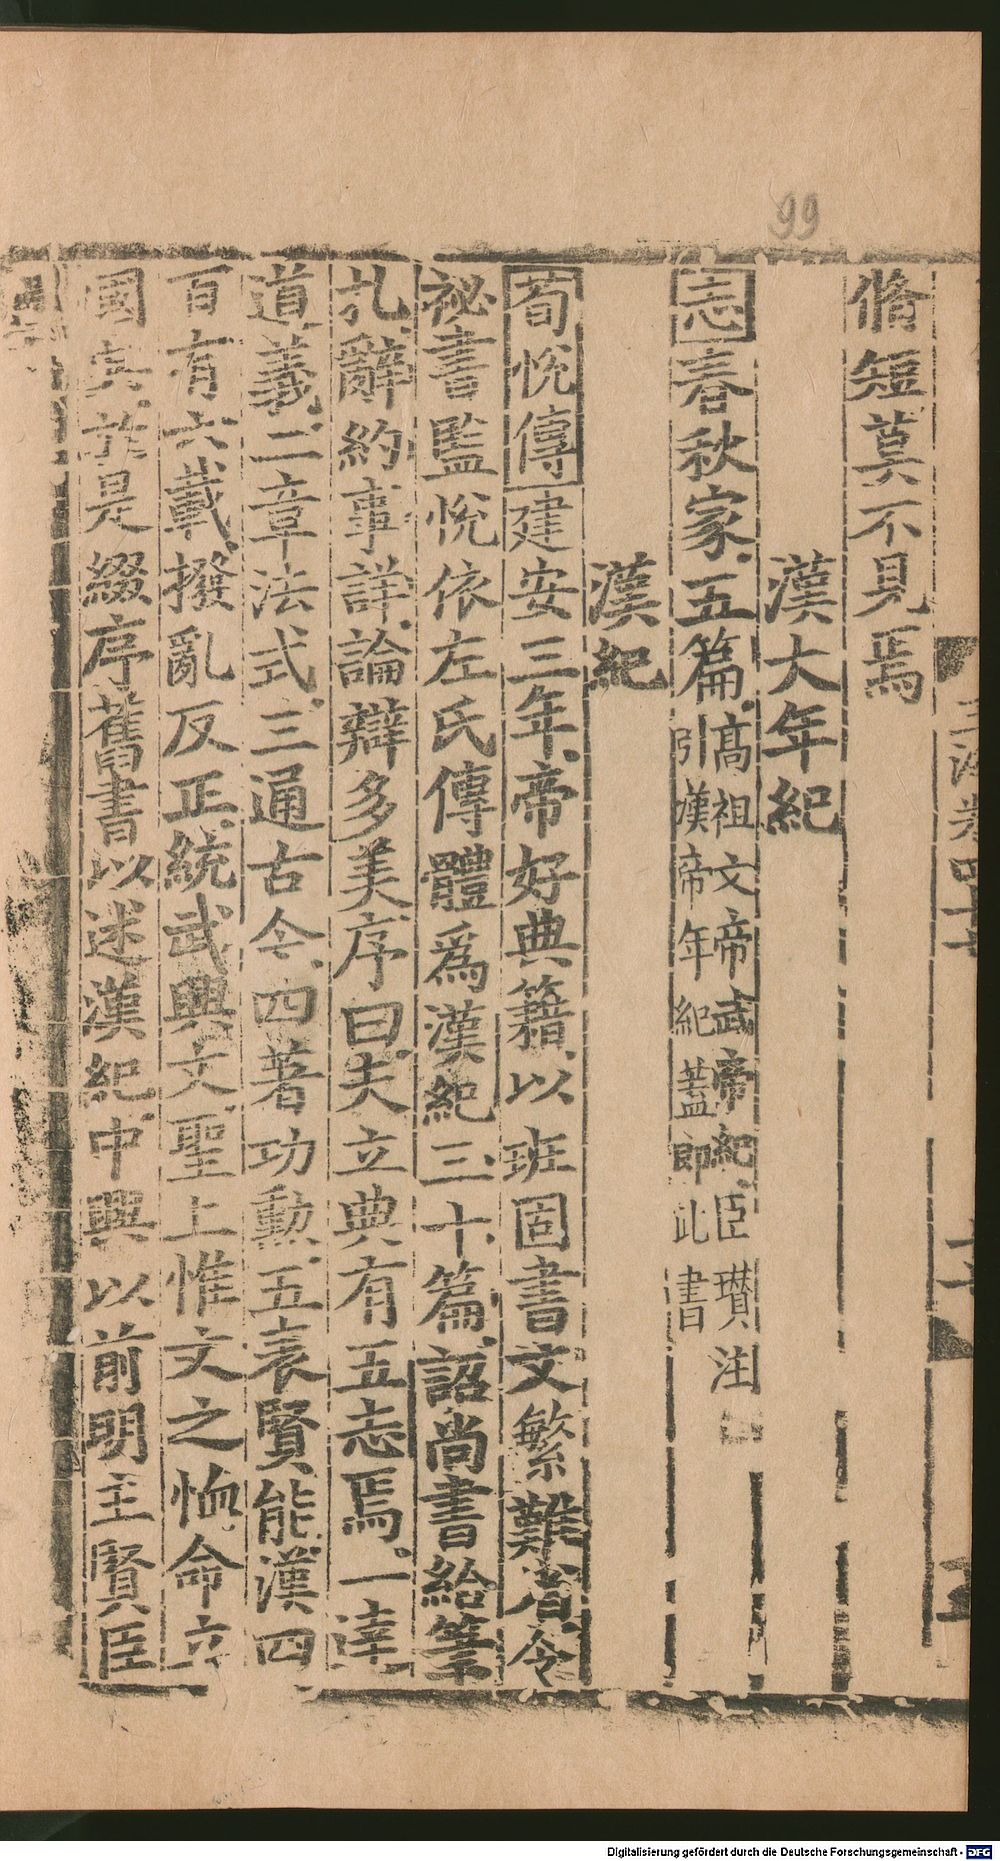 99
脩短莫不見焉
漢大年紀
志春秋家五篇高祖文帝武帝紀臣瓚注
引漢帝年紀蓋即此書
漢紀
荀悅傳建安三年帝好典籍以班固書文繁難省令
祕書監悅依左氏傳體爲漢紀三十篇詔尚書給筆
札辭約事詳論辯多美序曰夫立典有五志焉一達
道義二章法式三通古今四著功勲五表賢能漢四
百有六載撥亂反正統武興文聖上惟文之恤命立
國典於是綴序舊書以述漢紀中興以前明主賢臣
Digitalisierung gefördert durch die Deutsche Forschungsgemeinschaft - DFG